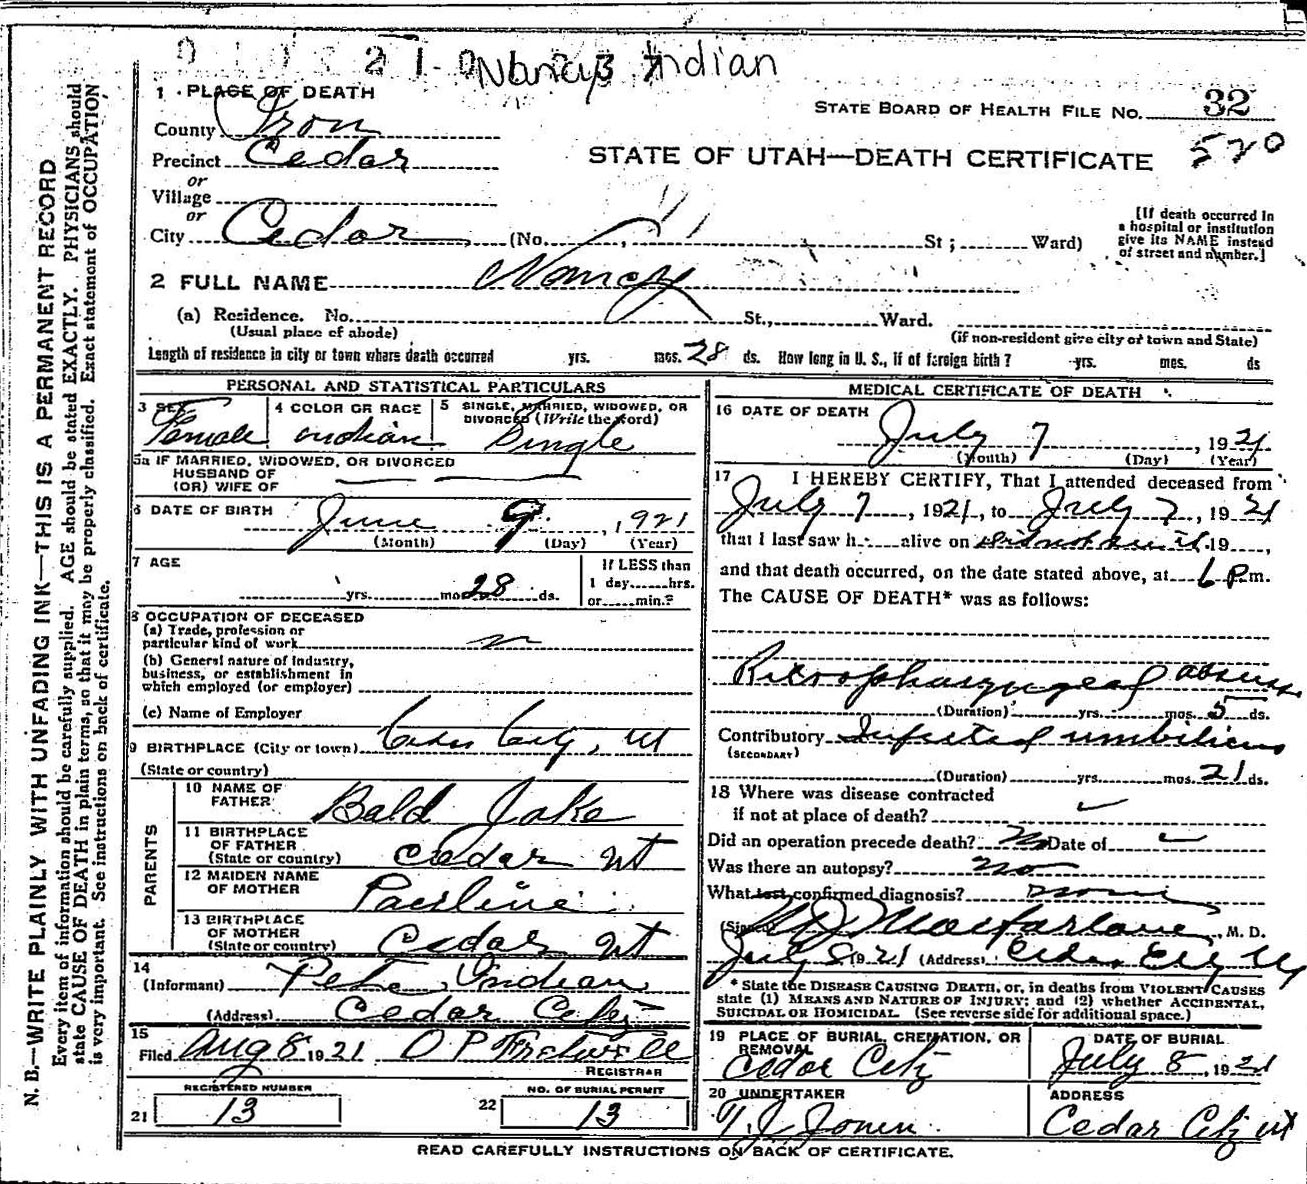 Nancy Indian
1 PLACE OF DEATH
STATE BOARD OF HEALTH FILE NO. 32
County Iron
520
Precinct Cedar
STATE OF UTAH—DEATH CERTIFICATE
or
Village
or
City Cedar (No. , St; Ward)
[If death occurred in
a hospital or institution
give its NAME instead
of street and number.]
2 FULL NAME Nancy
(a) Residence. No. St., Ward.
(Usual place of abode)
(if non-resident give city or town and State)
Length of residence in city or town where death occurred yrs. mos. 28 ds. How long in U. S., if of foreign birth? yrs. mos. ds
PERSONAL AND STATISTICAL PARTICULARS
3 SEX
Female
4 COLOR OR RACE
Indian
5 SINGLE, MARRIED, WIDOWED, OR
DIVORCED (Write the word)
Single
5a IF MARRIED, WIDOWED, OR DIVORCED
HUSBAND OF
(OR) WIFE OF
6 DATE OF BIRTH
June 9, 1921
(Month) (Day) (Year)
7 AGE
yrs. mos. 28 ds.
If LESS than
1 day......hrs.
or......min.?
8 OCCUPATION OF DECEASED
(a) Trade, profession or
particular kind of work
(b) General nature of industry,
business, or establishment in
which employed (or employer)
(c) Name of Employer
9 BIRTHPLACE (City or town) Cedar City, Ut
(State or country)
PARENTS
10 NAME OF
FATHER Bald Jake
11 BIRTHPLACE
OF FATHER
(State or country) Cedar Ut
12 MAIDEN NAME
OF MOTHER Pauline
13 BIRTHPLACE
OF MOTHER
(State or country) Cedar Ut
14
(Informant) Pete Indian
(Address) Cedar City
15
Filed Aug 8 1921 O P Fretwell
REGISTRAR
REGISTERED NUMBER
21 13
NO. OF BURIAL PERMIT
22 13
MEDICAL CERTIFICATE OF DEATH
16 DATE OF DEATH
July 7, 1921
(Month) (Day) (Year)
17 I HEREBY CERTIFY, That I attended deceased from
July 7, 1921, to July 7, 1921
that I last saw h alive on did not see it 19
and that death occurred, on the date stated above, at 6 P.m.
The CAUSE OF DEATH* was as follows:
Retropharyngeal abscess
(Duration) yrs. mos. 5 ds.
Contributory Infected umbilicus
(SECONDARY)
(Duration) yrs. mos. 21 ds.
18 Where was disease contracted
if not at place of death?
Did an operation precede death? No Date of
Was there an autopsy? no
What test confirmed diagnosis? none
(Signed) M J Macfarlane, M. D.
July 8, 1921 (Address) Cedar City Ut
* State the DISEASE CAUSING DEATH, or, in deaths from VIOLENT CAUSES
state (1) MEANS AND NATURE OF INJURY; and (2) whether ACCIDENTAL,
SUICIDAL OR HOMICIDAL. (See reverse side for additional space.)
19 PLACE OF BURIAL, CREMATION, OR
REMOVAL
Cedar City
DATE OF BURIAL
July 8, 1921
20 UNDERTAKER
T. J. Jones
ADDRESS
Cedar City Ut
READ CAREFULLY INSTRUCTIONS ON BACK OF CERTIFICATE.
N. B.—WRITE PLAINLY WITH UNFADING INK—THIS IS A PERMANENT RECORD
Every item of information should be carefully supplied. AGE should be stated EXACTLY. PHYSICIANS should
state CAUSE OF DEATH in plain terms, so that it may be properly classified. Exact statement of OCCUPATION
is very important. See instructions on back of certificate.